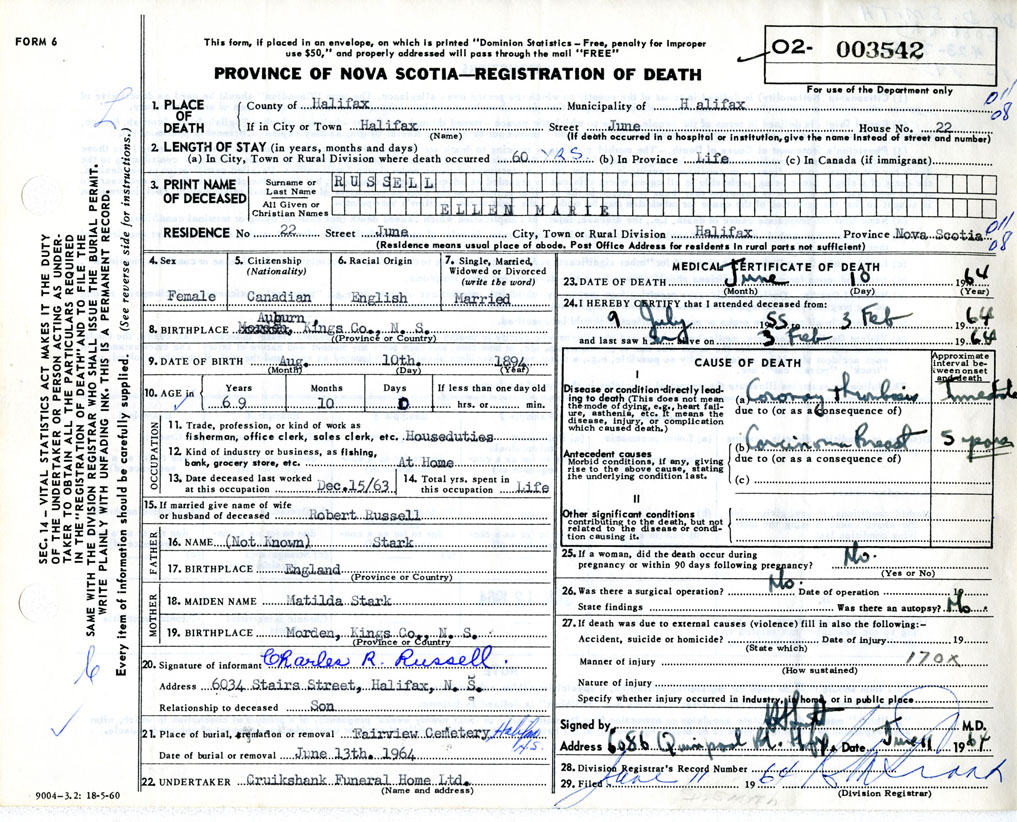 FORM 6
This form, if placed in an envelope, on which is printed "Dominion Statistics – Free, penalty for improper
use $50," and properly addressed will pass through the mail "FREE"
PROVINCE OF NOVA SCOTIA—REGISTRATION OF DEATH
02- 003542
For use of the Department only
SEC. 14 – VITAL STATISTICS ACT MAKES IT THE DUTY
OF THE UNDERTAKER OR PERSON ACTING AS UNDER-
TAKER TO OBTAIN ALL THE PARTICULARS REQUIRED
IN THE "REGISTRATION OF DEATH" AND TO FILE THE
SAME WITH THE DIVISION REGISTRAR WHO SHALL ISSUE THE BURIAL PERMIT.
WRITE PLAINLY WITH UNFADING INK. THIS IS A PERMANENT RECORD.
Every item of information should be carefully supplied. (See reverse side for instructions.)
1. PLACE OF DEATH
County of Halifax Municipality of Halifax
011
08
If in City or Town Halifax Street June House No. 22
(Name) (If death occurred in a hospital or institution, give the name instead of street and number)
2. LENGTH OF STAY (in years, months and days)
(a) In City, Town or Rural Division where death occurred 60 YRS. (b) In Province Life (c) In Canada (if immigrant)
3. PRINT NAME OF DECEASED
Surname or Last Name RUSSELL
All Given or Christian Names ELLEN MARIE
RESIDENCE No 22 Street June City, Town or Rural Division Halifax Province Nova Scotia
011
08
(Residence means usual place of abode. Post Office Address for residents in rural parts not sufficient)
4. Sex
Female
5. Citizenship
(Nationality)
Canadian
6. Racial Origin
English
7. Single, Married,
Widowed or Divorced
(write the word)
Married
8. BIRTHPLACE Auburn, Morden, Kings Co., N. S.
(Province or Country)
9. DATE OF BIRTH Aug. 10th. 1894
(Month) (Day) (Year)
10. AGE in
Years 69
Months 10
Days 0
If less than one day old
hrs. or min.
OCCUPATION
11. Trade, profession, or kind of work as
fisherman, office clerk, sales clerk, etc. Houseduties
12. Kind of industry or business, as fishing,
bank, grocery store, etc. At Home
13. Date deceased last worked
at this occupation Dec.15/63
14. Total yrs. spent in
this occupation Life
15. If married give name of wife
or husband of deceased Robert Russell
FATHER
16. NAME (Not Known) Stark
17. BIRTHPLACE England
(Province or Country)
MOTHER
18. MAIDEN NAME Matilda Stark
19. BIRTHPLACE Morden, Kings Co., N. S.
(Province or Country
20. Signature of informant Charles R. Russell.
Address 6034 Stairs Street, Halifax, N. S.
Relationship to deceased Son
21. Place of burial, cremation or removal Fairview Cemetery, Halifax N.S.
Date of burial or removal June 13th. 1964
22. UNDERTAKER Cruikshank Funeral Home Ltd.
(Name and address)
9004-3.2: 18-5-60
MEDICAL CERTIFICATE OF DEATH
23. DATE OF DEATH June 10 1964
(Month) (Day) (Year)
24. I HEREBY CERTIFY that I attended deceased from:
9 July 1955 to 3 Feb 1964
and last saw her alive on 3 Feb 1964
CAUSE OF DEATH
Approximate
interval be-
tween onset
and death
I
Disease or condition directly lead-
ing to death (This does not mean
the mode of dying, e.g., heart fail-
ure, asthenia, etc. It means the
disease, injury, or complication
which caused death.)
(a) Coronary thrombosis
due to (or as a consequence of)
Antecedent causes
Morbid conditions, if any, giving
rise to the above cause, stating
the underlying condition last.
(b) Carcinoma Breast 5 years
due to (or as a consequence of)
(c)
II
Other significant conditions
contributing to the death, but not
related to the disease or condi-
tion causing it.
25. If a woman, did the death occur during
pregnancy or within 90 days following pregnancy? No.
(Yes or No)
26. Was there a surgical operation? No. Date of operation 19
State findings Was there an autopsy? No.
27. If death was due to external causes (violence) fill in also the following:-
Accident, suicide or homicide? Date of injury 19
(State which)
Manner of injury 170X
(How sustained)
Nature of injury
Specify whether injury occurred in industry, in home, or in public place
Signed by M.D.
Address 6086 Quinpool Rd. Hfx. Date June 11 1964
28. Division Registrar's Record Number
29. Filed June 11 1964
(Division Registrar)